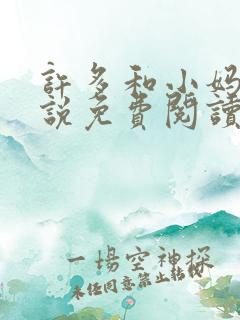 許多和小妈
說免費閱讀
一場空神探
未经同意禁止转载